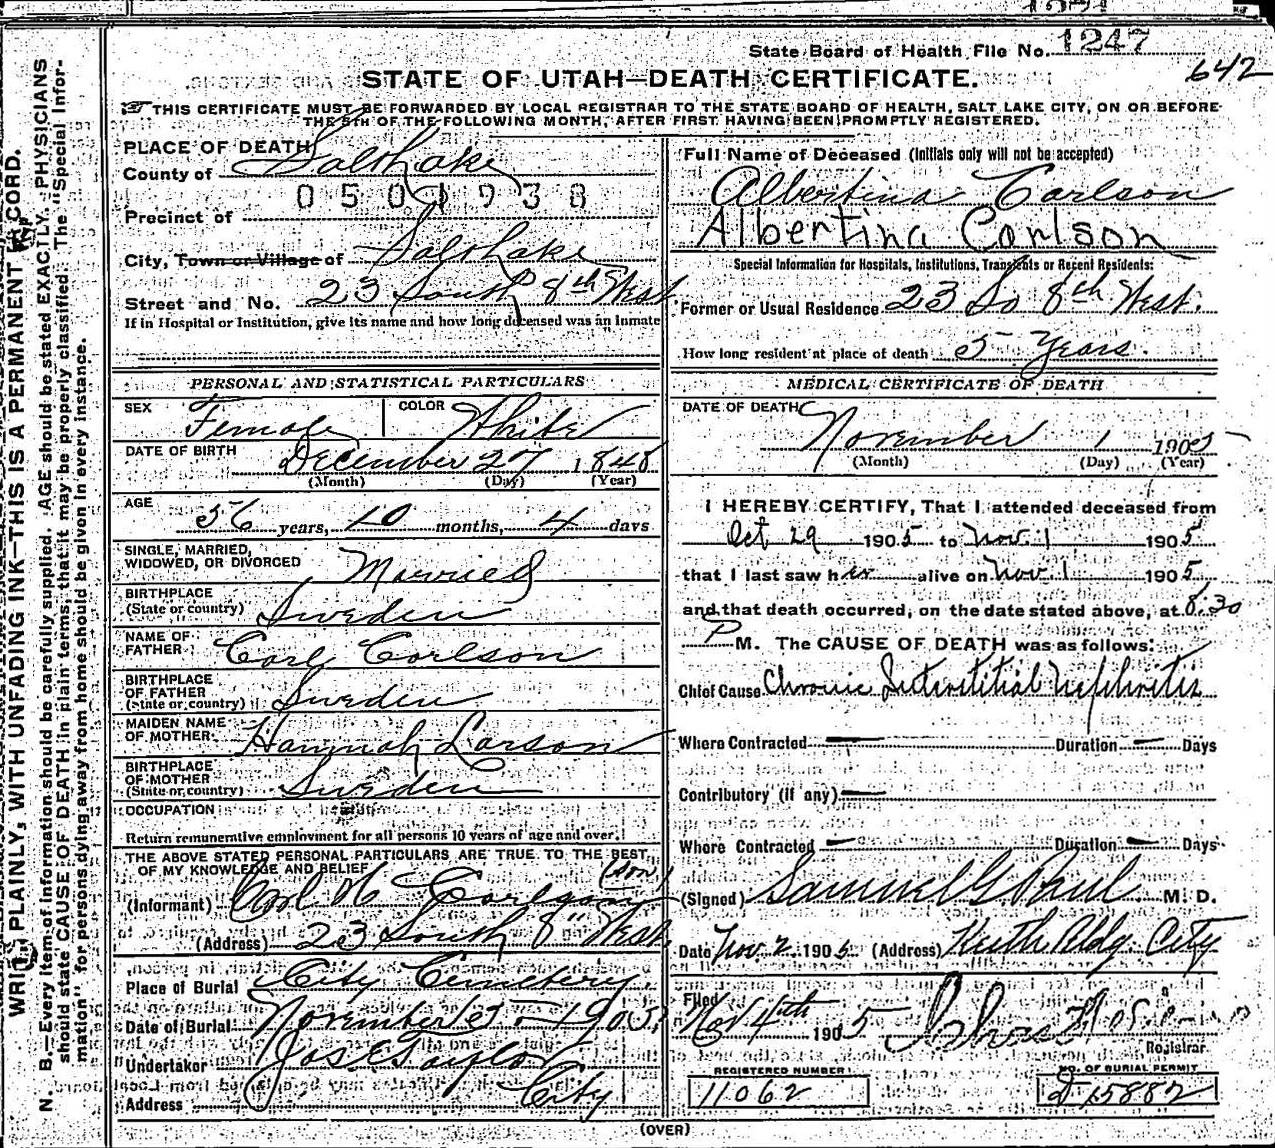 State Board of Health File No. 1247
642
STATE OF UTAH—DEATH CERTIFICATE.
THIS CERTIFICATE MUST BE FORWARDED BY LOCAL REGISTRAR TO THE STATE BOARD OF HEALTH, SALT LAKE CITY, ON OR BEFORE
THE 5TH OF THE FOLLOWING MONTH, AFTER FIRST HAVING BEEN PROMPTLY REGISTERED.
WRITE PLAINLY, WITH UNFADING INK—THIS IS A PERMANENT RECORD.
N. B.—Every item of information should be carefully supplied. AGE should be stated EXACTLY. PHYSICIANS
should state CAUSE OF DEATH in plain terms, that it may be properly classified. The "Special Infor-
mation" for persons dying away from home should be given in every instance.
PLACE OF DEATH
County of Salt Lake
0501938
Precinct of
City, Town or Village of Salt Lake
Street and No. 23 South 8th West
If in Hospital or Institution, give its name and how long deceased was an inmate
PERSONAL AND STATISTICAL PARTICULARS
SEX Female COLOR White
DATE OF BIRTH December 27 1848
(Month) (Day) (Year)
AGE 56 years, 10 months, 4 days
SINGLE, MARRIED,
WIDOWED, OR DIVORCED Married
BIRTHPLACE
(State or country) Sweden
NAME OF
FATHER Carl Carlson
BIRTHPLACE
OF FATHER
(State or country) Sweden
MAIDEN NAME
OF MOTHER Hannah Larson
BIRTHPLACE
OF MOTHER
(State or country) Sweden
OCCUPATION
Return remunerative employment for all persons 10 years of age and over.
THE ABOVE STATED PERSONAL PARTICULARS ARE TRUE TO THE BEST
OF MY KNOWLEDGE AND BELIEF
(son)
(Informant) Carl Carlson
(Address) 23 South 8" West
Place of Burial City Cemetery
Date of Burial November 5 - 1905
Undertaker Jos E Taylor
Address City
Full Name of Deceased (Initials only will not be accepted)
Albertina Carlson
Albertina Carlson
Special Information for Hospitals, Institutions, Transients or Recent Residents:
Former or Usual Residence 23 So 8th West.
How long resident at place of death 5 Years.
MEDICAL CERTIFICATE OF DEATH
DATE OF DEATH
November 1 1905
(Month) (Day) (Year)
I HEREBY CERTIFY, That I attended deceased from
Oct 29 1905 to Nov. 1 1905
that I last saw her alive on Nov. 1 1905
and that death occurred, on the date stated above, at 8:30
P M. The CAUSE OF DEATH was as follows:
Chief Cause Chronic Interstitial Nephritis
Where Contracted — Duration — Days
Contributory (if any) —
Where Contracted — Duration — Days
(Signed) Samuel G Paul M. D.
Date Nov 2 1905 (Address) Keith Bldg. City
Filed
Nov 4th 1905 Chas
Registrar
REGISTERED NUMBER
11062
NO. OF BURIAL PERMIT
D 15882
(OVER)